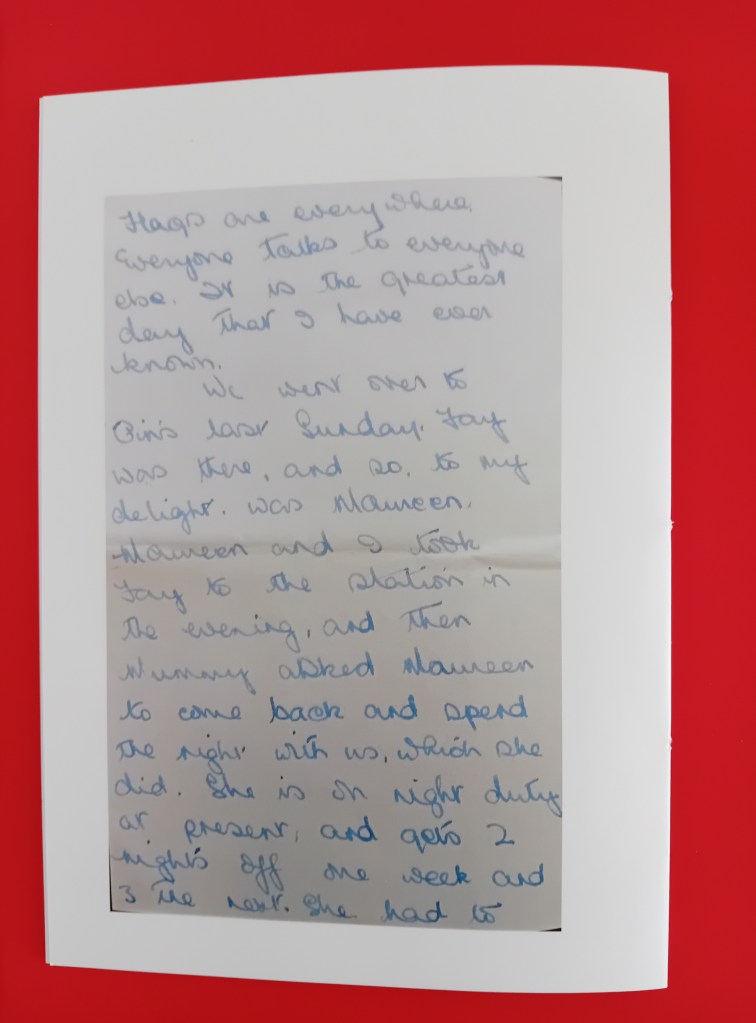 Flags are everywhere.
Everyone talks to everyone
else. It is the greatest
day that I have ever
known.
We went over to
last Sunday. Fay
was there, and so, to my
delight, was Maureen.
Maureen and I took
Fay to the station in
the evening, and then
Mummy asked Maureen
to come back and spend
the night with us, which she
did. She is on night duty
at present, and gets 2
nights off one week and
3 the next. She had to